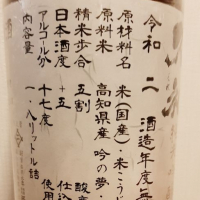 令和二酒造年度
原材料名 米(国産)・米こうじ
原料米 高知県産 吟の夢・
精米歩合 五割 酸
日本酒度 +五 仕込
アルコール分 十七度 使用
内容量 一、八リットル詰